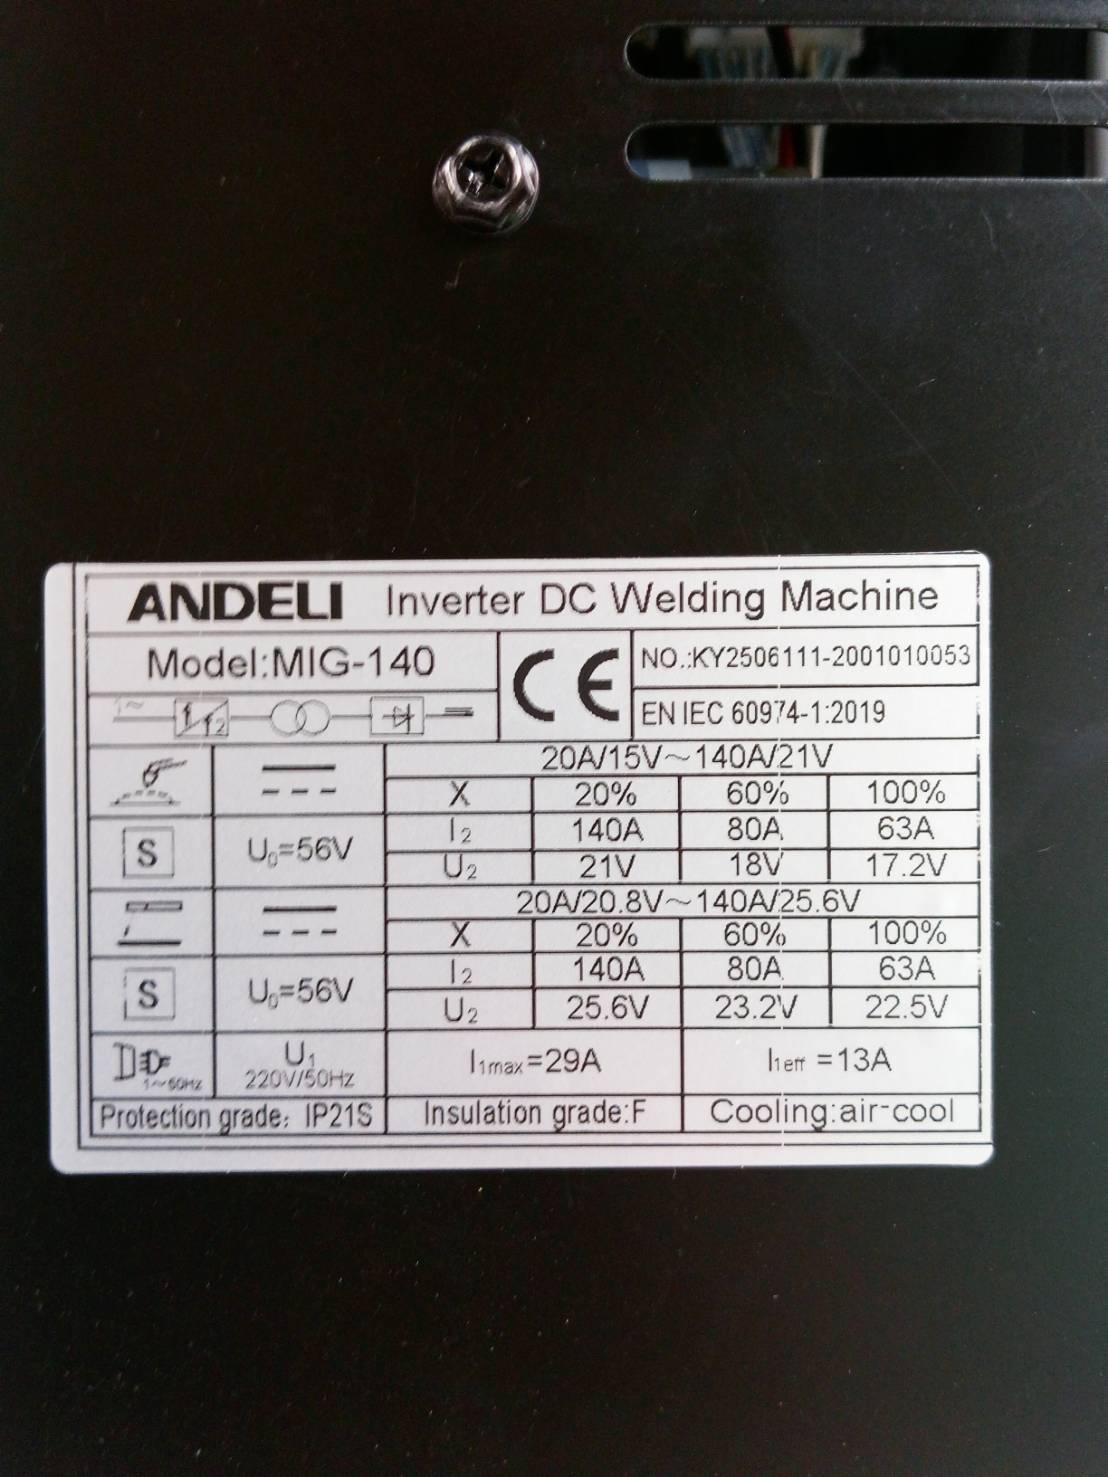 ANDELI Inverter DC Welding Machine
Model:MIG-140
NO.:KY2506111-2001010053
1~ f1 f2
EN IEC 60974-1:2019
20A/15V~140A/21V
X 20% 60% 100%
S U₀=56V
I₂ 140A 80A 63A
U₂ 21V 18V 17.2V
20A/20.8V~140A/25.6V
X 20% 60% 100%
S U₀=56V
I₂ 140A 80A 63A
U₂ 25.6V 23.2V 22.5V
1~50Hz
U₁
220V/50Hz
I₁max=29A
I₁eff =13A
Protection grade: IP21S
Insulation grade:F
Cooling:air-cool